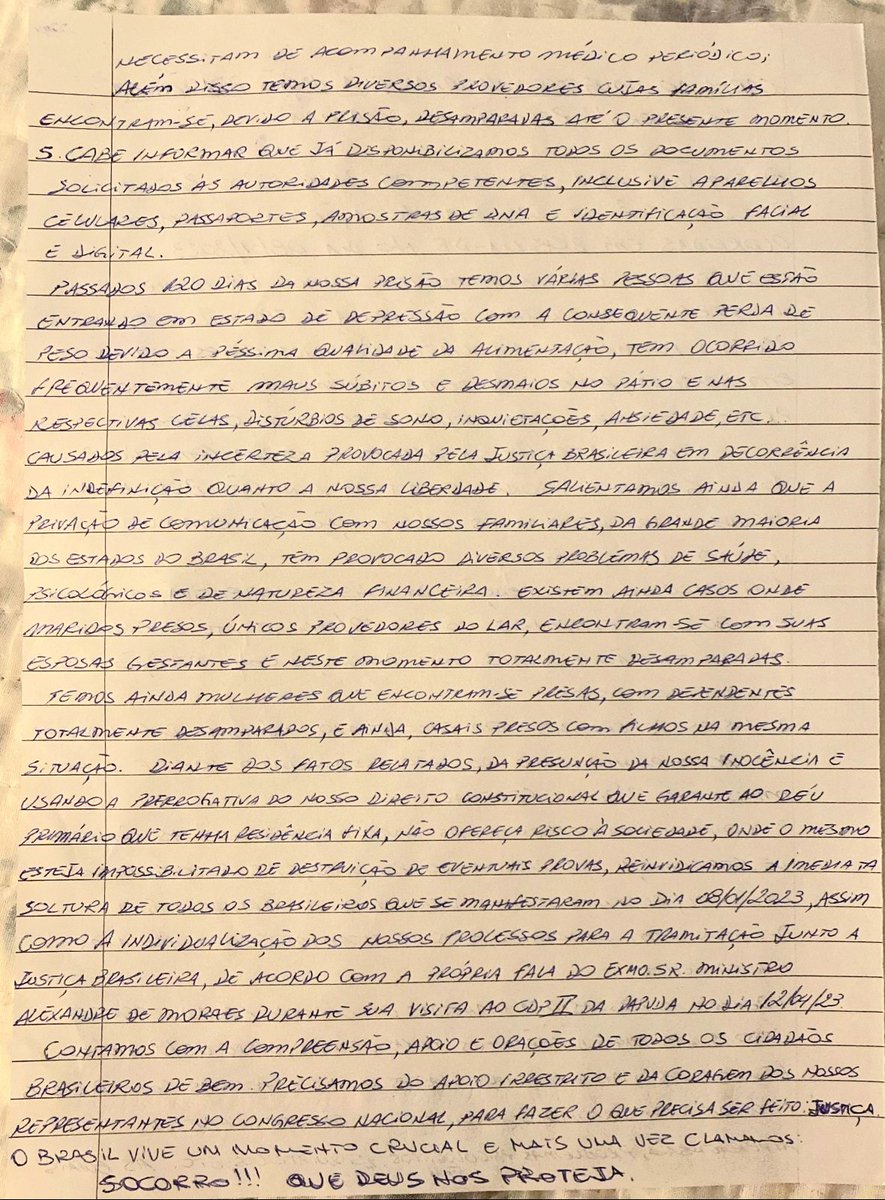 NECESSITAM DE ACOMPANHAMENTO MÉDICO PERIÓDICO;
ALÉM DISSO TEMOS DIVERSOS PROVEDORES CUJAS FAMÍLIAS
ENCONTRAM-SE, DEVIDO A PRISÃO, DESAMPARADAS ATÉ O PRESENTE MOMENTO.
5. CABE INFORMAR QUE JÁ DISPONIBILIZAMOS TODOS OS DOCUMENTOS
SOLICITADOS ÀS AUTORIDADES COMPETENTES, INCLUSIVE APARELHOS
CELULARES, PASSAPORTES, AMOSTRAS DE DNA E IDENTIFICAÇÃO FACIAL
E DIGITAL.
PASSADOS 120 DIAS DA NOSSA PRISÃO TEMOS VÁRIAS PESSOAS QUE ESTÃO
ENTRANDO EM ESTADO DE DEPRESSÃO COM A CONSEQUENTE PERDA DE
PESO DEVIDO A PÉSSIMA QUALIDADE DA ALIMENTAÇÃO, TEM OCORRIDO
FREQUENTEMENTE MAUS SÚBITOS E DESMAIOS NO PÁTIO E NAS
RESPECTIVAS CELAS, DISTÚRBIOS DE SONO, INQUIETAÇÕES, ANSIEDADE, ETC...
CAUSADOS PELA INCERTEZA PROVOCADA PELA JUSTIÇA BRASILEIRA EM DECORRÊNCIA
DA INDEFINIÇÃO QUANTO A NOSSA LIBERDADE. SALIENTAMOS AINDA QUE A
PRIVAÇÃO DE COMUNICAÇÃO COM NOSSOS FAMILIARES, DA GRANDE MAIORIA
DOS ESTADOS DO BRASIL, TÊM PROVOCADO DIVERSOS PROBLEMAS DE SAÚDE,
PSICOLÓGICOS E DE NATUREZA FINANCEIRA. EXISTEM AINDA CASOS ONDE
MARIDOS PRESOS, ÚNICOS PROVEDORES DO LAR, ENCONTRAM-SE COM SUAS
ESPOSAS GESTANTES E NESTE MOMENTO TOTALMENTE DESAMPARADAS.
TEMOS AINDA MULHERES QUE ENCONTRAM-SE PRESAS, COM DEPENDENTES
TOTALMENTE DESAMPARADOS, E AINDA, CASAIS PRESOS COM FILHOS NA MESMA
SITUAÇÃO. DIANTE DOS FATOS RELATADOS, DA PRESUNÇÃO DA NOSSA INOCÊNCIA E
USANDO A PRERROGATIVA DO NOSSO DIREITO CONSTITUCIONAL QUE GARANTE AO RÉU
PRIMÁRIO QUE TENHA RESIDÊNCIA FIXA, NÃO OFEREÇA RISCO À SOCIEDADE, ONDE O MESMO
ESTEJA IMPOSSIBILITADO DE DESTRUIÇÃO DE EVENTUAIS PROVAS, REINVIDICAMOS A IMEDIATA
SOLTURA DE TODOS OS BRASILEIROS QUE SE MANIFESTARAM NO DIA 08/01/2023, ASSIM
COMO A INDIVIDUALIZAÇÃO DOS NOSSOS PROCESSOS PARA A TRAMITAÇÃO JUNTO A
JUSTIÇA BRASILEIRA, DE ACORDO COM A PRÓPRIA FALA DO EXMO. SR. MINISTRO
ALEXANDRE DE MORAES DURANTE SUA VISITA AO CDP II DA PAPUDA NO DIA 12/04/23
CONTAMOS COM A COMPREENSÃO, APOIO E ORAÇÕES DE TODOS OS CIDADÃOS
BRASILEIROS DE BEM. PRECISAMOS DO APOIO IRRESTRITO E DA CORAGEM DOS NOSSOS
REPRESENTANTES NO CONGRESSO NACIONAL, PARA FAZER O QUE PRECISA SER FEITO: JUSTIÇA.
O BRASIL VIVE UM MOMENTO CRUCIAL E MAIS UMA VEZ CLAMAMOS:
SOCORRO!!! QUE DEUS NOS PROTEJA.